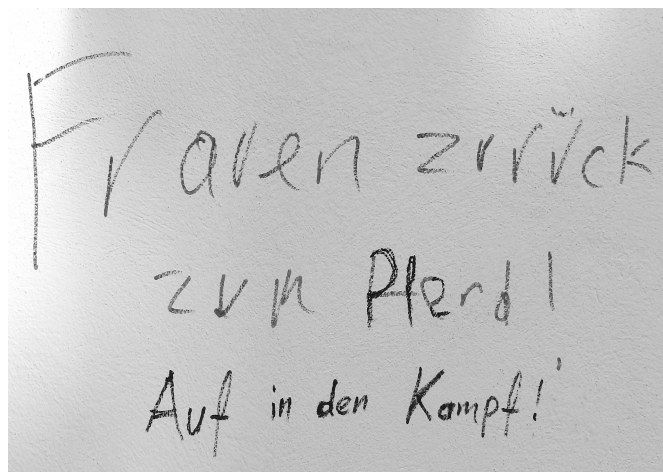 Frauen zurück
zum Pferd!
Auf in den Kampf!